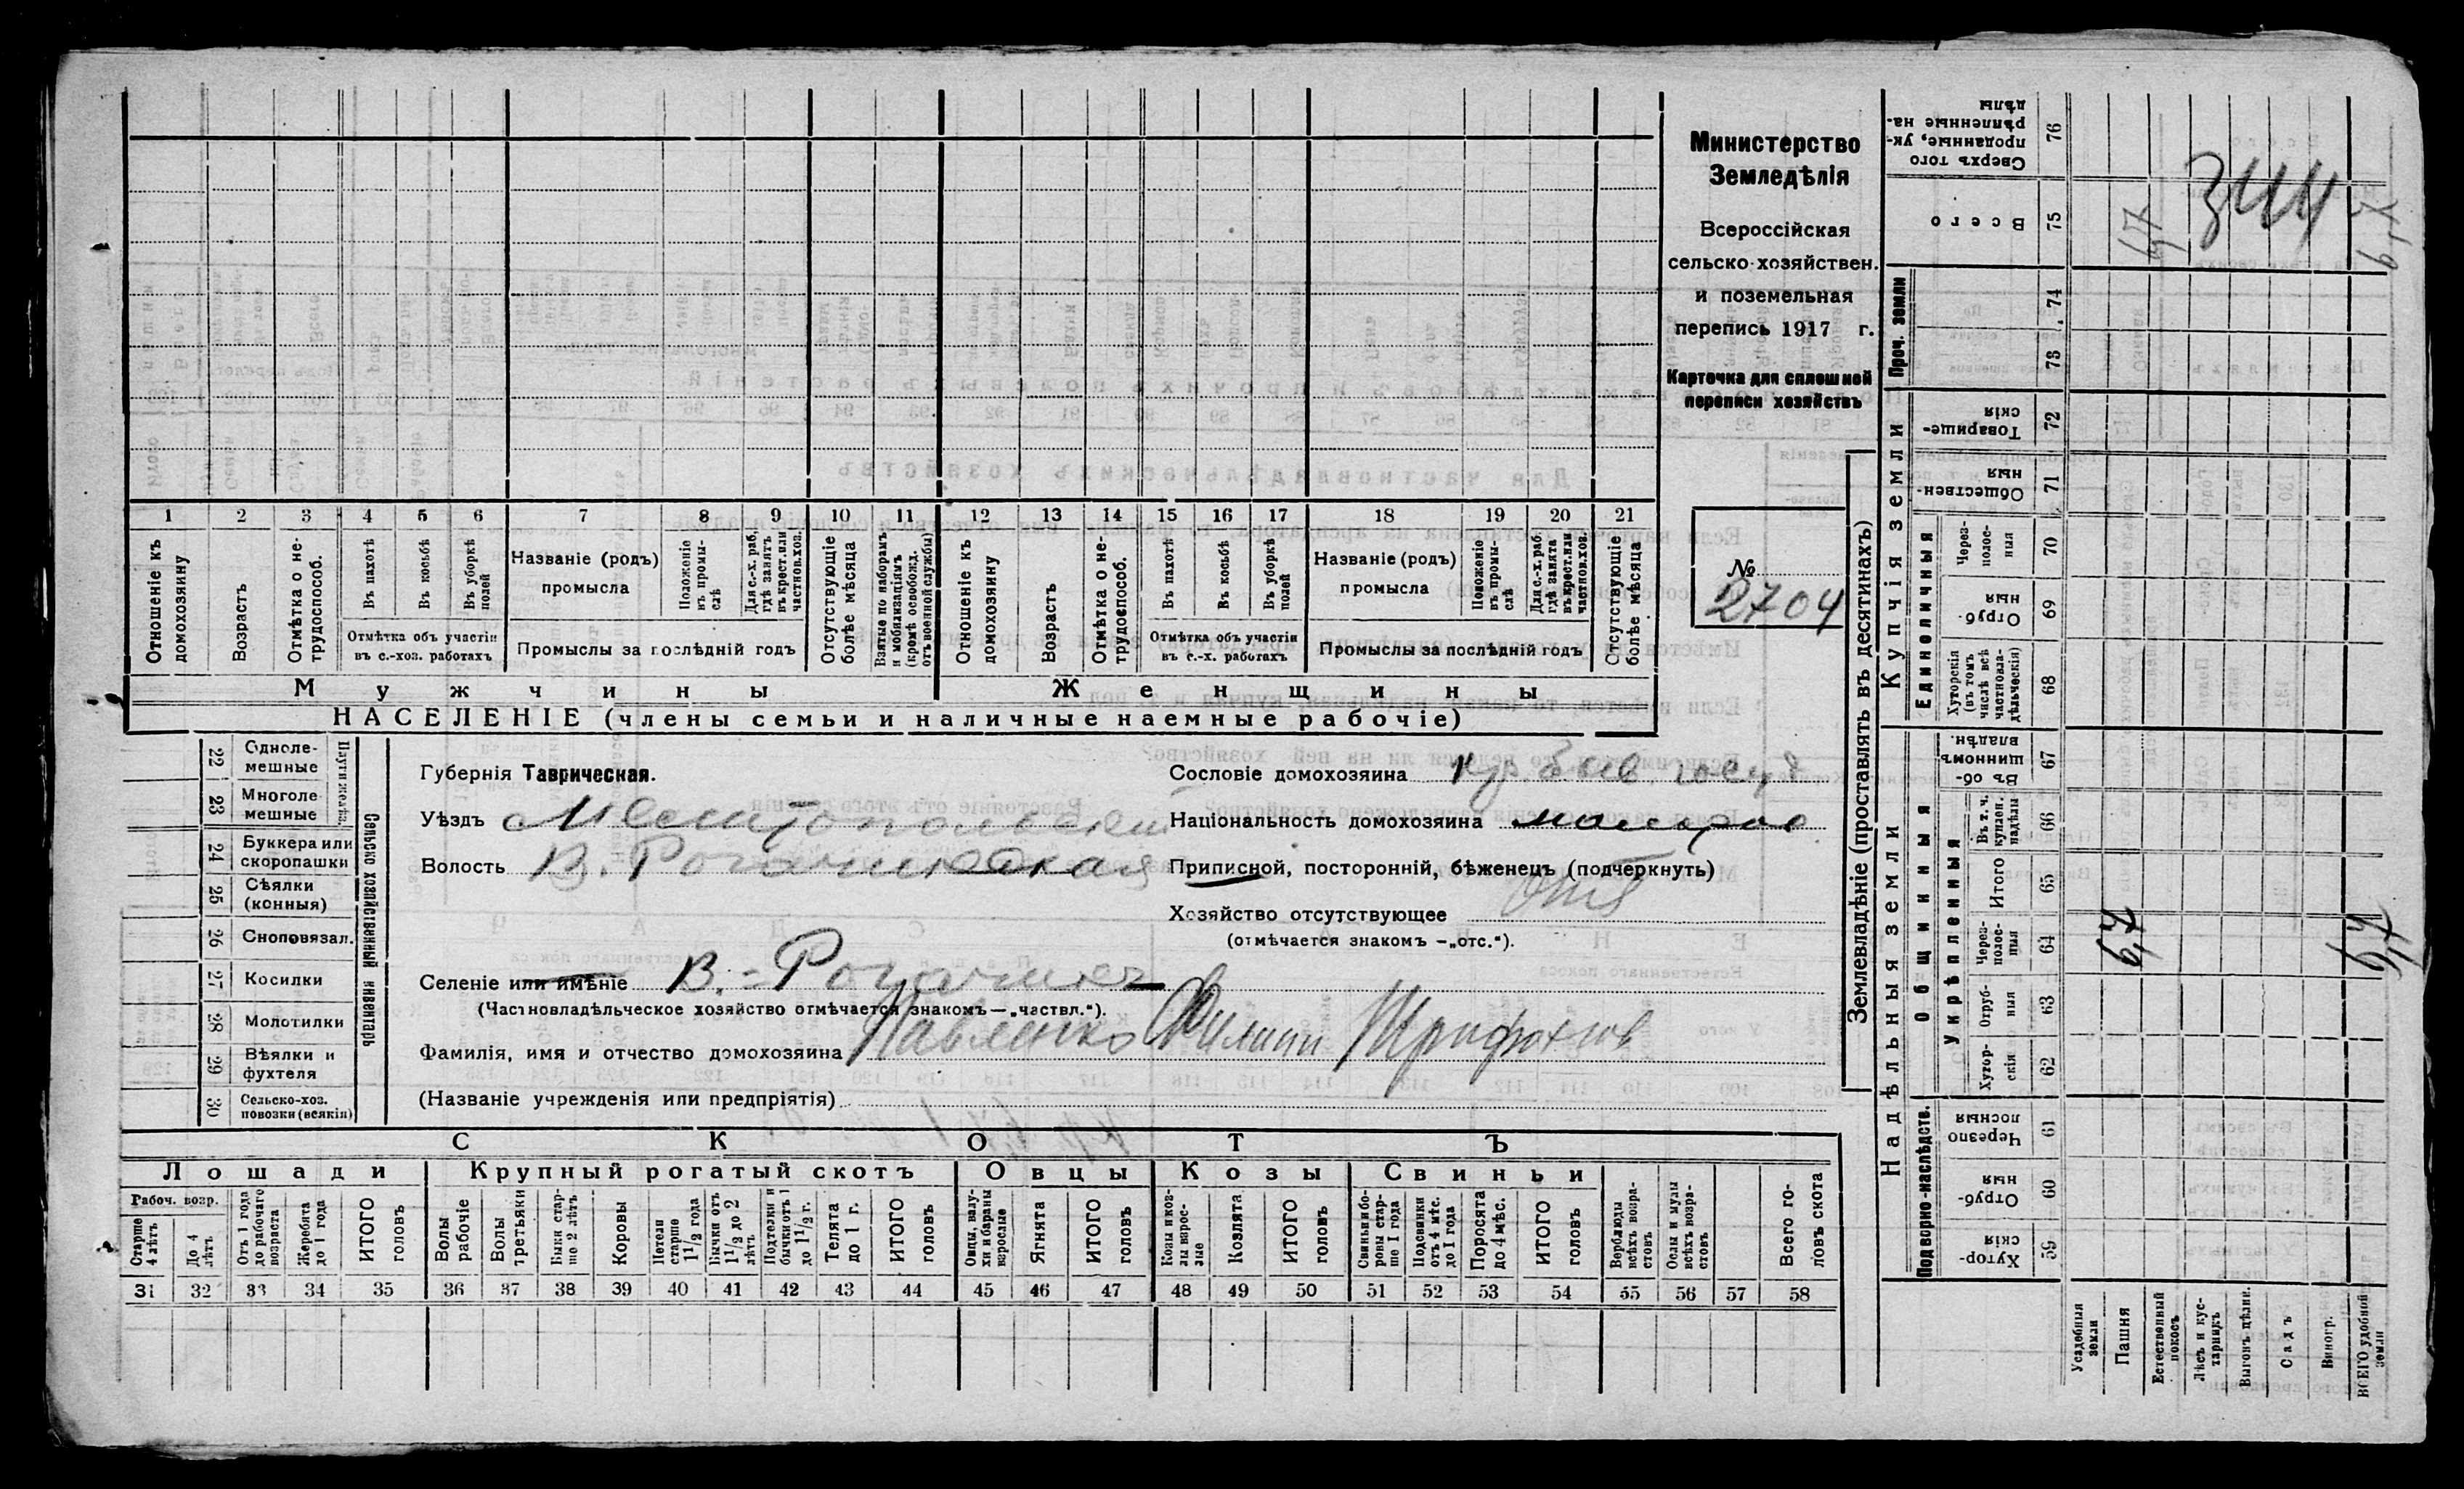 Министерство
Земледѣлія
Всероссійская
сельско-хозяйствен.
и поземельная
перепись 1917 г.
Карточка для сплошной
переписи хозяйствъ
№
2704
1 2 3 4 5 6 7 8 9 10 11 12 13 14 15 16 17 18 19 20 21
Отношеніе къ домохозяину
Возрастъ
Отмѣтка о нетрудоспособ.
Въ пахотѣ
Въ косьбѣ
Въ уборкѣ полей
Отмѣтка объ участіи въ с.-хоз. работахъ
Названіе (родъ) промысла
Положеніе въ промыслѣ
Для с.-х. раб. гдѣ занятъ въ крест. или частнов. хоз.
Промыслы за послѣдній годъ
Отсутствующіе болѣе мѣсяца
Взятые по наборамъ и мобилизаціямъ (кромѣ освобожд. отъ военной службы)
Отношеніе къ домохозяину
Возрастъ
Отмѣтка о нетрудоспособ.
Въ пахотѣ
Въ косьбѣ
Въ уборкѣ полей
Отмѣтка объ участіи въ с.-х. работахъ
Названіе (родъ) промысла
Положеніе въ промыслѣ
Для с.-х. раб. гдѣ занята въ крест. или частнов. хоз.
Промыслы за послѣдній годъ
Отсутствующіе болѣе мѣсяца
Мужчины
Женщины
НАСЕЛЕНІЕ (члены семьи и наличные наемные рабочіе)
22 Однолемешные
23 Многолемешные
Плуги желѣз.
24 Буккера или скоропашки
25 Сѣялки (конныя)
26 Сноповязал.
27 Косилки
28 Молотилки
29 Вѣялки и фухтеля
30 Сельско-хоз. повозки (всякія)
Сельско хозяйственный инвентарь
Губернія Таврическая.
Уѣздъ Мелитопольскій
Волость В. Рогачикская
Селеніе или имѣніе В.-Рогачикъ
(Частновладѣльческое хозяйство отмѣчается знакомъ—„частвл.“).
Фамилія, имя и отчество домохозяина Павленко Филипп Трифонов
(Названіе учрежденія или предпріятія)
Сословіе домохозяина кр. быв. госуд
Національность домохозяина малорос
Приписной, посторонній, бѣженецъ (подчеркнуть)
Хозяйство отсутствующее отс
(отмѣчается знакомъ —„отс.“).
СКОТЪ
Лошади
Крупный рогатый скотъ
Овцы
Козы
Свиньи
Рабоч. возр.
Старше 4 лѣтъ
До 4 лѣтъ
Отъ 1 года до рабочаго возраста
Жеребята до 1 года
ИТОГО головъ
Волы рабочіе
Волы третьяки
Быки старше 2 лѣтъ
Коровы
Нетели старше 1 1/2 года
Бычки отъ 1 1/2 до 2 лѣтъ
Подтелки и бычки отъ 1 до 1 1/2 г.
Телята до 1 г.
ИТОГО головъ
Овцы, валухи и бараны взрослые
Ягнята
ИТОГО головъ
Козы и козлы взрослые
Козлята
ИТОГО головъ
Свиньи и боровы старше 1 года
Подсвинки отъ 4 мѣс. до 1 года
Поросята до 4 мѣс.
ИТОГО головъ
Верблюды всѣхъ возрастовъ
Ослы и мулы всѣхъ возрастовъ
Всего головъ скота
31 32 33 34 35 36 37 38 39 40 41 42 43 44 45 46 47 48 49 50 51 52 53 54 55 56 57 58
Землевладѣніе (проставлять въ десятинахъ)
Надѣльныя земли
Купчія земли
Проч. земли
Подворно-наслѣдств.
Общинныя
Укрѣпленныя
Единоличныя
Хуторскія 59
Отрубныя 60
Черезполосныя 61
Хуторскія 62
Отрубныя 63
Черезполосныя 64
Итого 65
Въ т. ч. куплен. надѣлы 66
Въ общинномъ владѣн. 67
Хуторскія (въ томъ числѣ всѣ частновладѣльческія) 68
Отрубныя 69
Черезполосныя 70
Общественныя 71
Товарищескія 72
73
74
Всего 75
Сверхъ того проданные, укрѣпленные надѣлы 76
Усадебныя земли
Пашня
Естественный покосъ
Лѣсъ и кустарникъ
Выгонъ цѣлин.
Садъ
Виногр.
ВСЕГО удобной земли
344